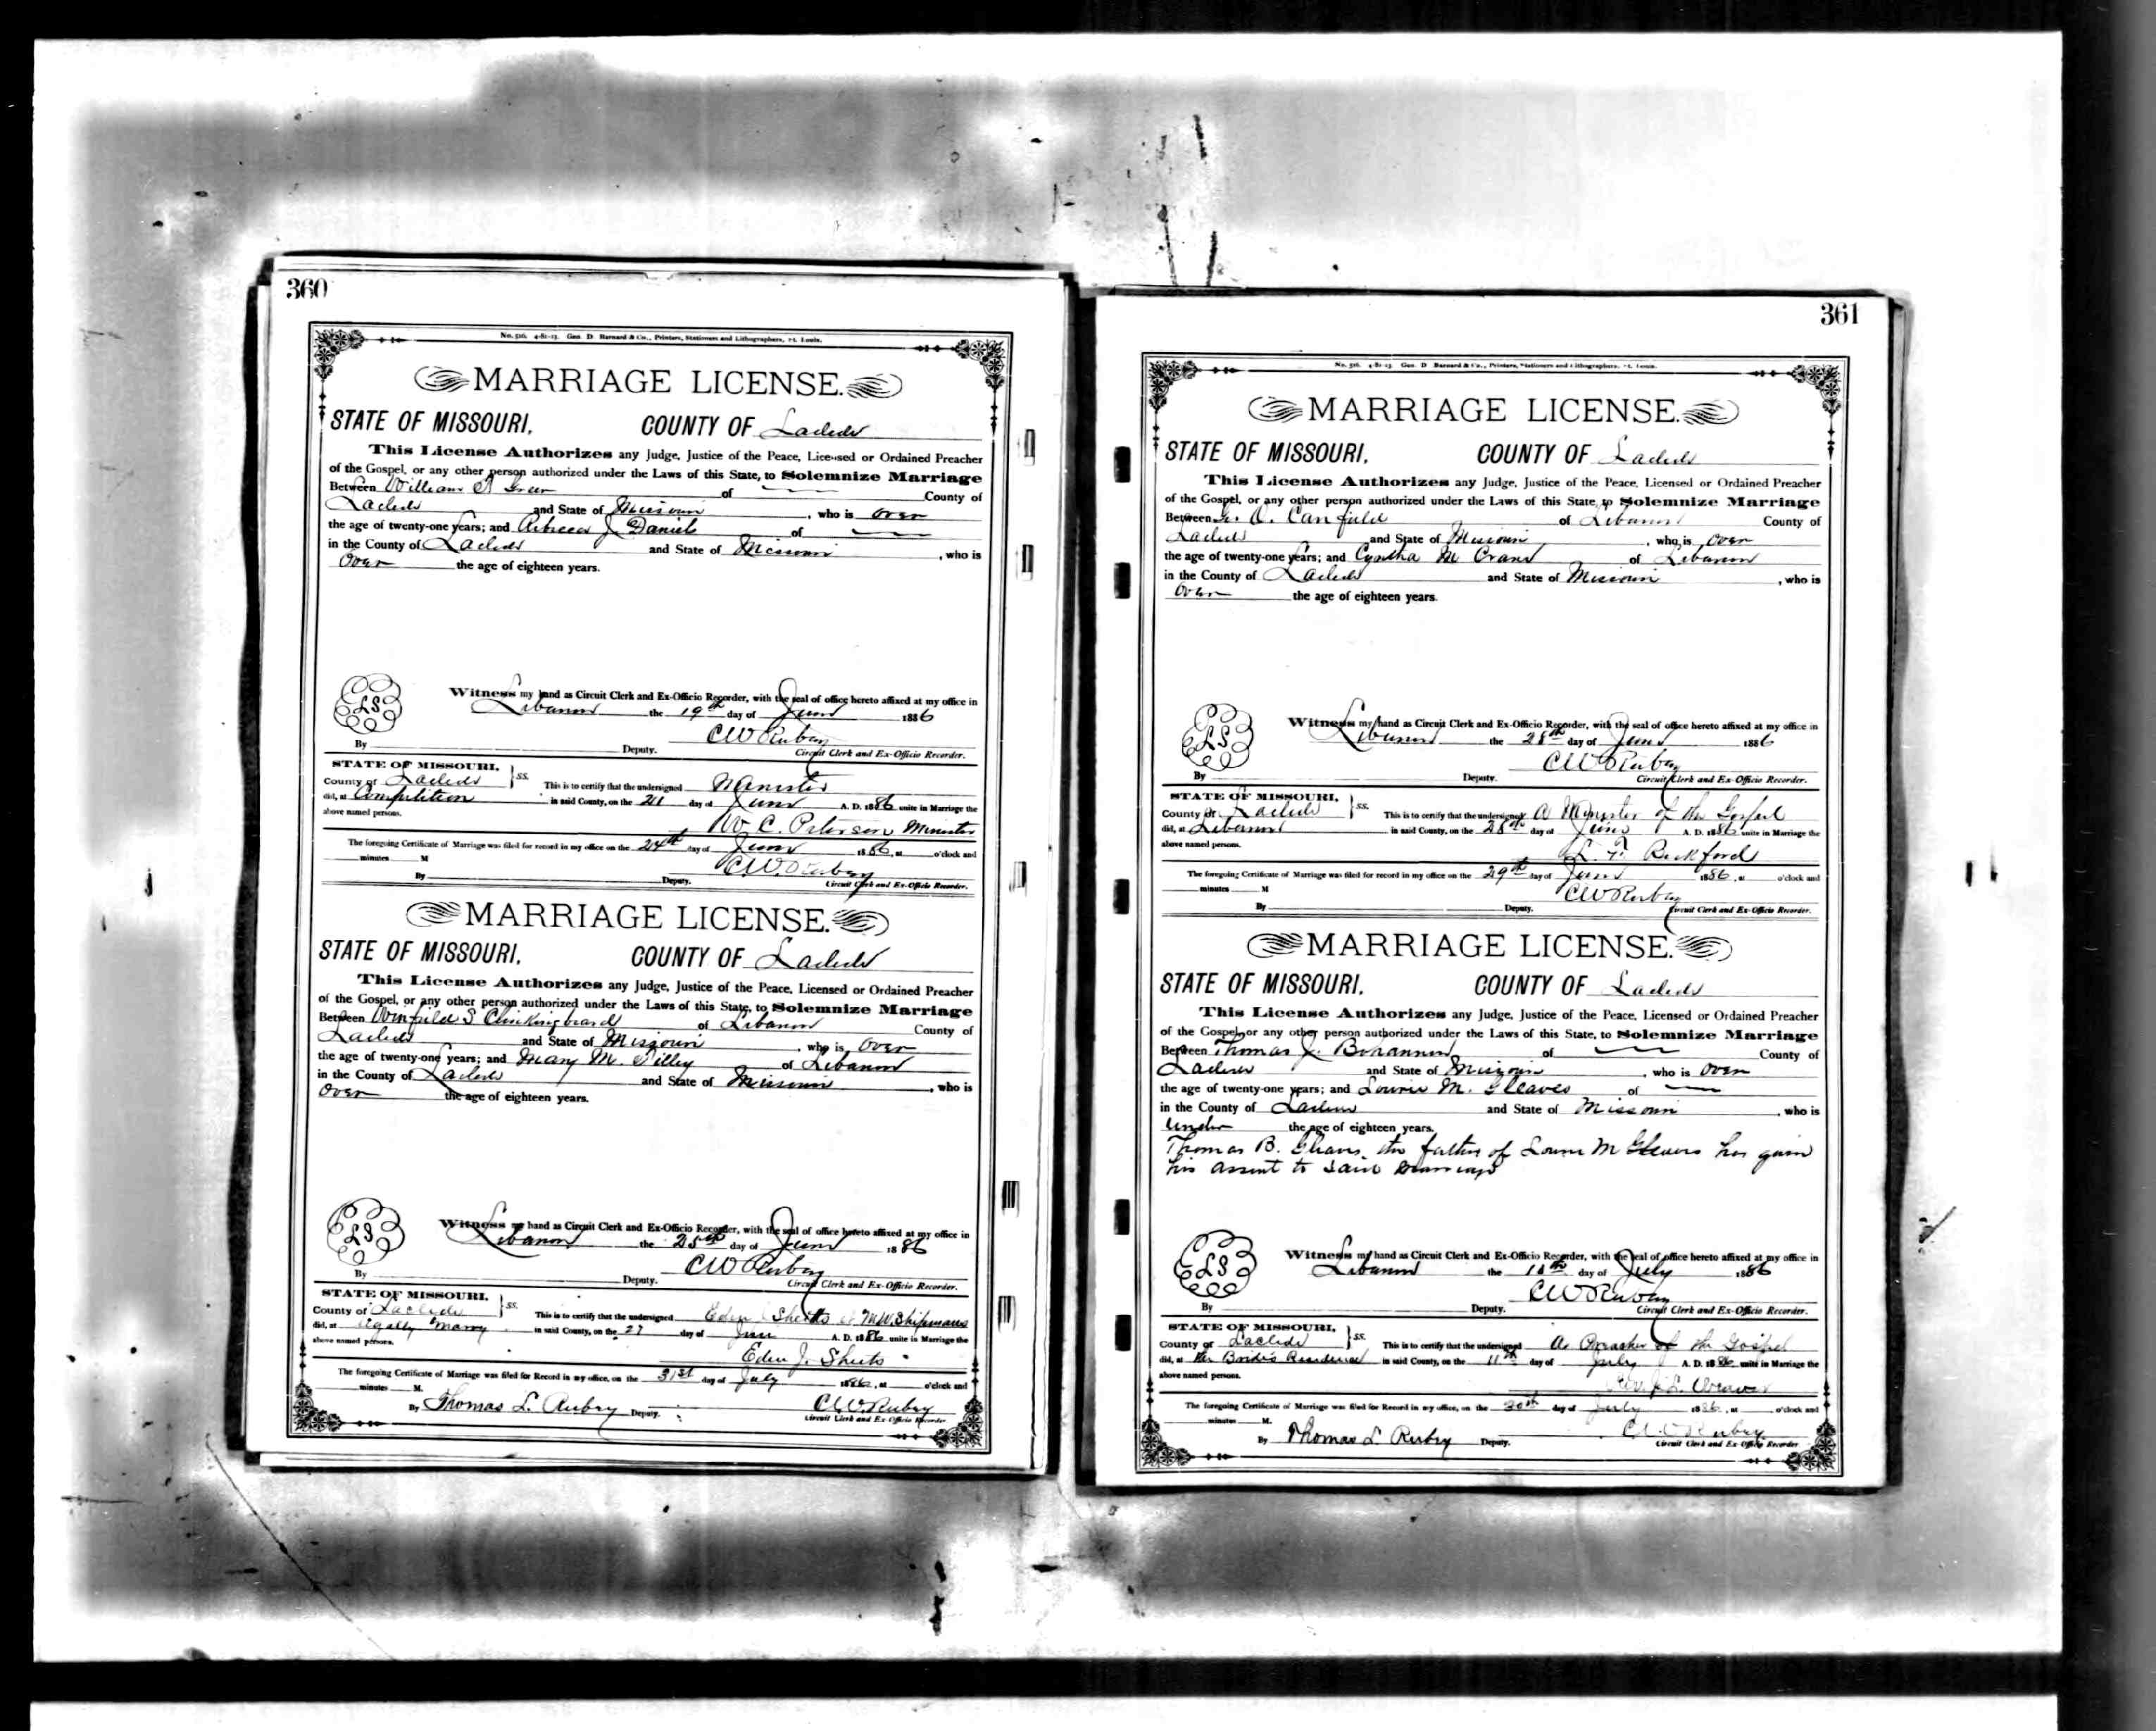 360
No. 516. 4-81-13. Geo. D Barnard & Co., Printers, Stationers and Lithographers, St. Louis.
MARRIAGE LICENSE.
STATE OF MISSOURI, COUNTY OF Laclede
This License Authorizes any Judge, Justice of the Peace, Licensed or Ordained Preacher
of the Gospel, or any other person authorized under the Laws of this State, to Solemnize Marriage
Between William Greer of County of
Laclede and State of Missouri, who is over
the age of twenty-one years; and Rebecca J Daniel of
in the County of Laclede and State of Missouri, who is
Over the age of eighteen years.
Witness my hand as Circuit Clerk and Ex-Officio Recorder, with the seal of office hereto affixed at my office in
LS Lebanon the 19th day of June 1886
C W Rubey
By Deputy. Circuit Clerk and Ex-Officio Recorder.
STATE OF MISSOURI,
County of Laclede ss. This is to certify that the undersigned Minister
did, at Competition in said County, on the day of June A. D. 1886 unite in Marriage the
above named persons.
W C. Peterson Minister
The foregoing Certificate of Marriage was filed for record in my office on the 24th day of June 1886, at o'clock and
minutes M
C W. Rubey
By Deputy. Circuit Clerk and Ex-Officio Recorder.
MARRIAGE LICENSE.
STATE OF MISSOURI, COUNTY OF Laclede
This License Authorizes any Judge, Justice of the Peace, Licensed or Ordained Preacher
of the Gospel, or any other person authorized under the Laws of this State, to Solemnize Marriage
Between Winfield S Clinkingbeard of Lebanon County of
Laclede and State of Missouri, who is over
the age of twenty-one years; and Mary M. Tilley of Lebanon
in the County of Laclede and State of Missouri, who is
Over the age of eighteen years.
Witness my hand as Circuit Clerk and Ex-Officio Recorder, with the seal of office hereto affixed at my office in
LS Lebanon the 25th day of June 1886
C W Rubey
By Deputy. Circuit Clerk and Ex-Officio Recorder.
STATE OF MISSOURI,
County of Laclede ss. This is to certify that the undersigned Eden J Sheets at M.W. Shipmans
did, at legally marry in said County, on the 27 day of June A. D. 1886 unite in Marriage the
above named persons.
Eden J. Sheets
The foregoing Certificate of Marriage was filed for Record in my office, on the 31st day of July 1886, at o'clock and
minutes M.
By Thomas L. Rubey Deputy. C W. Rubey
Circuit Clerk and Ex-Officio Recorder
361
No. 516. 4-81-13 Geo. D Barnard & Co., Printers, Stationers and Lithographers, St. Louis.
MARRIAGE LICENSE.
STATE OF MISSOURI, COUNTY OF Laclede
This License Authorizes any Judge, Justice of the Peace, Licensed or Ordained Preacher
of the Gospel, or any other person authorized under the Laws of this State, to Solemnize Marriage
Between Canfield of Lebanon County of
Laclede and State of Missouri, who is over
the age of twenty-one years; and Cyntha M Crane of Lebanon
in the County of Laclede and State of Missouri, who is
Over the age of eighteen years.
Witness my hand as Circuit Clerk and Ex-Officio Recorder, with the seal of office hereto affixed at my office in
LS Lebanon the 28th day of June 1886
C W Rubey
By Deputy. Circuit Clerk and Ex-Officio Recorder.
STATE OF MISSOURI,
County of Laclede ss. This is to certify that the undersigned A Minister of the Gospel
did, at Lebanon in said County, on the 28th day of June A. D. 1886 unite in Marriage the
above named persons.
L. F. Bickford
The foregoing Certificate of Marriage was filed for record in my office on the 29th day of June 1886, at o'clock and
minutes M
C W Rubey
By Deputy. Circuit Clerk and Ex-Officio Recorder.
MARRIAGE LICENSE.
STATE OF MISSOURI, COUNTY OF Laclede
This License Authorizes any Judge, Justice of the Peace, Licensed or Ordained Preacher
of the Gospel, or any other person authorized under the Laws of this State, to Solemnize Marriage
Between Thomas J. Bohannon of County of
Laclede and State of Missouri, who is Over
the age of twenty-one years; and Lourie M. Gleaves of
in the County of Laclede and State of Missouri, who is
Under the age of eighteen years.
Thomas B. Gleaves the father of Lourie M Gleaves has given
his assent to said marriage
Witness my hand as Circuit Clerk and Ex-Officio Recorder, with the seal of office hereto affixed at my office in
LS Lebanon the day of July 1886
C W Rubey
By Deputy. Circuit Clerk and Ex-Officio Recorder.
STATE OF MISSOURI,
County of Laclede ss. This is to certify that the undersigned A Preacher of the Gospel
did, at the Bride's Residence in said County, on the 11th day of July A. D. 1886 unite in Marriage the
above named persons.
Rev. J. L. Weaver
The foregoing Certificate of Marriage was filed for Record in my office, on the 30th day of July 1886, at o'clock and
minutes M.
By Thomas L Rubey Deputy. C. W. Rubey
Circuit Clerk and Ex-Officio Recorder